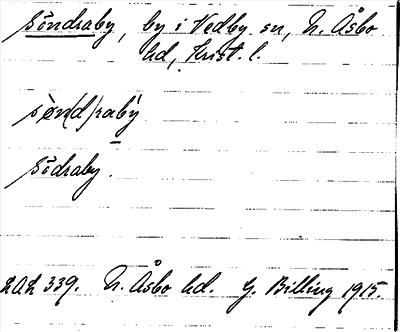 söndraby, by i Vedby sn, N. Åsbo
hd, Krist. l.
sön(d)raby
södraby.
LAL 339. N. Åsbo hd. G. Billing 1915.